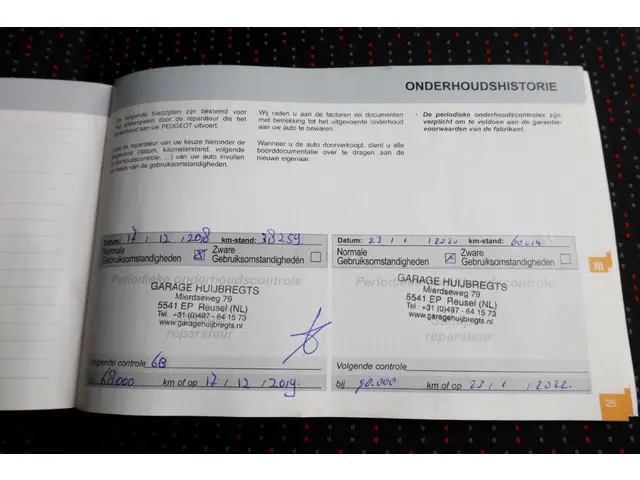 ONDERHOUDSHISTORIE
volgende bladzijden zijn bestemd voor
het afstempelen door de reparateur die het
onderhoud aan uw PEUGEOT uitvoert.
de reparateur van uw keuze hieronder de
gegevens (datum, kilometerstand, volgende
onderhoudscontrole, ...) van uw auto invullen
op basis van de gebruiksomstandigheden.
Wij raden u aan de facturen en documenten
met betrekking tot het uitgevoerde onderhoud
aan uw auto te bewaren.
Wanneer u de auto doorverkoopt, dient u alle
boorddocumentatie over te dragen aan de
nieuwe eigenaar.
- De periodieke onderhoudscontroles zijn
verplicht om te voldoen aan de garantie-
voorwaarden van de fabrikant.
Datum: 17 / 12 / 2018 km-stand: 38259
Normale Gebruiksomstandigheden Zware Gebruiksomstandigheden
Periodieke onderhoudscontrole
GARAGE HUIJBREGTS
Mierdseweg 79
5541 EP Reusel (NL)
Tel. +31 (0)497 - 64 15 73
www.garagehuijbregts.nl
reparateur
Volgende controle 6B
68.000 km of op 17 / 12 / 2019
Datum: 23 / 1 / 2020 km-stand:
Normale Gebruiksomstandigheden Zware Gebruiksomstandigheden
GARAGE HUIJBREGTS
Mierdseweg 79
5541 EP Reusel (NL)
Tel. +31 (0)497 - 64 15 73
www.garagehuijbregts.nl
reparateur
Volgende controle
bij 90.000 km of op 23 / 1 / 2022
III
25